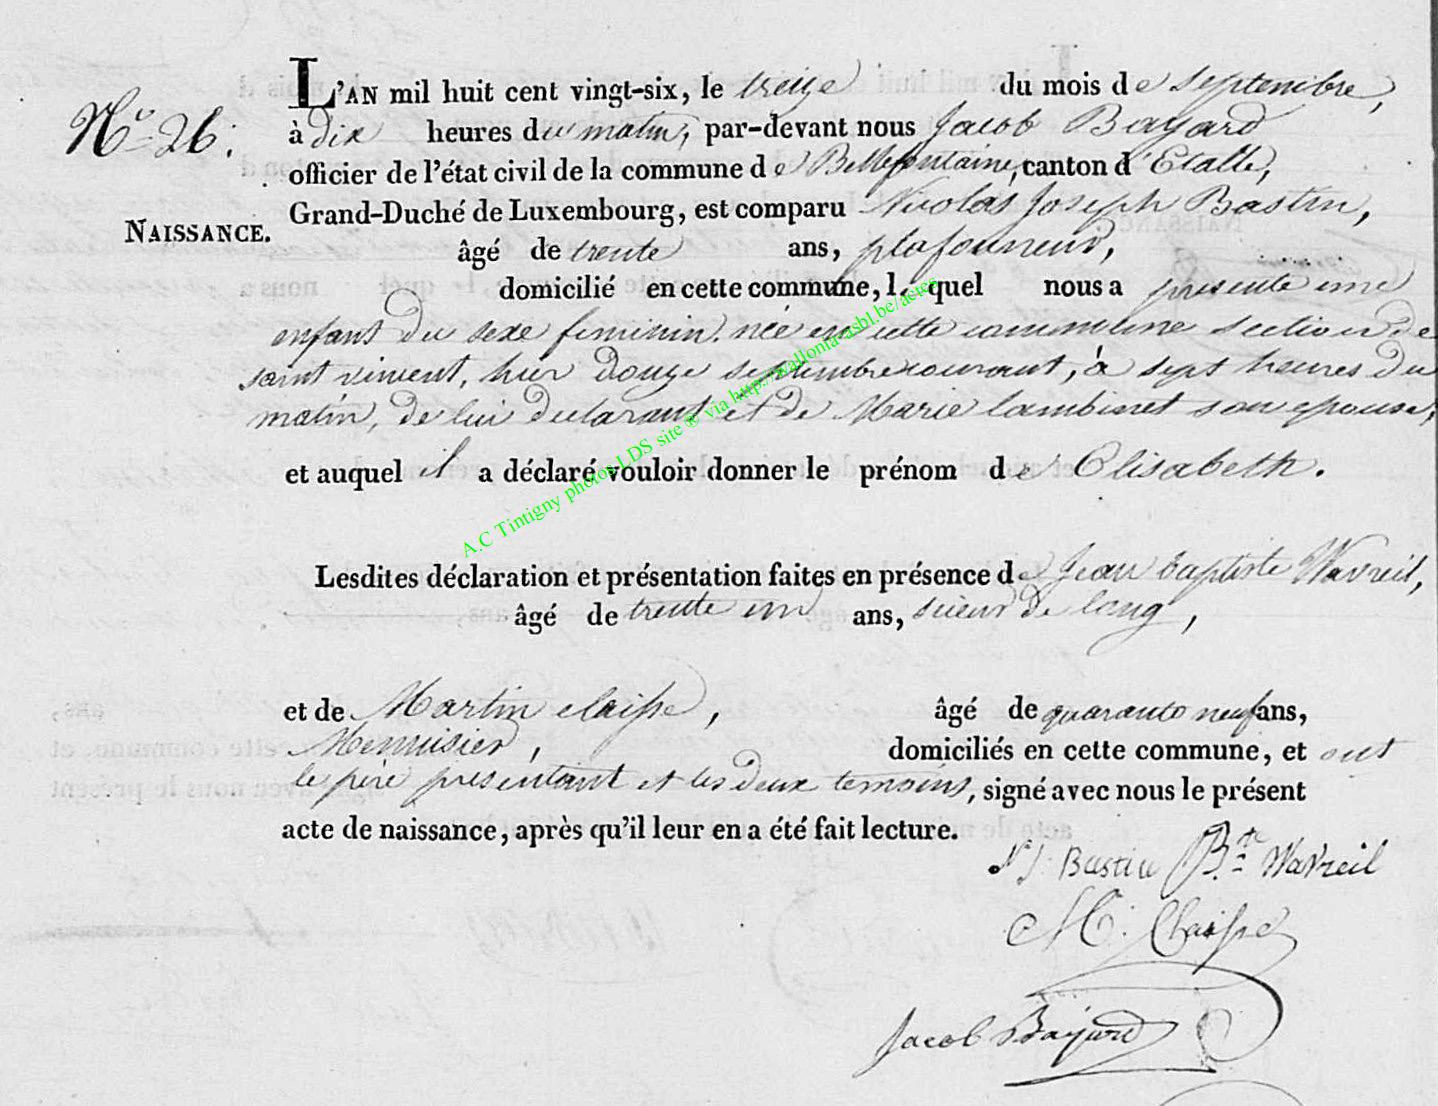 L'AN mil huit cent vingt-six, le treize du mois de septembre,
No 26. à dix heures du matin, par-devant nous Jacob Bayard
officier de l'état civil de la commune de Bellefontaine, canton d'Etalle,
Grand-Duché de Luxembourg, est comparu Nicolas Joseph Bastin,
NAISSANCE.
âgé de trente ans, plafonneur,
domicilié en cette commune, lequel nous a presenté une
enfant du sexe feminin née en cette commune section de
saint vincent, hier douze septembre courant, à sept heures du
matin, de lui declarant et de Marie Lambinet son epouse,
et auquel il a déclaré vouloir donner le prénom de Elisabeth.
Lesdites déclaration et présentation faites en présence de Jean baptiste Wavreil,
âgé de trente un ans, scieur de long,
et de Martin claisse, âgé de quarante neuf ans,
Menuisier, domiciliés en cette commune, et ont
le père presentant et les deux temoins, signé avec nous le présent
acte de naissance, après qu'il leur en a été fait lecture.
N J Bastin Bte Wavreil
M. Claisse
Jacob Bayard
A.C Tintigny photos LDS site ® via http://wallonia-asbl.be/actes